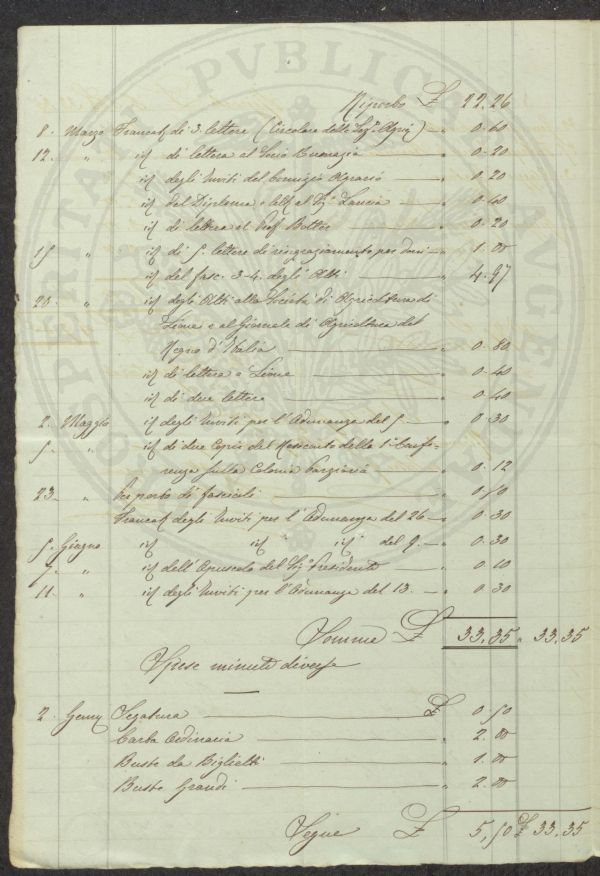 PROSPERITATI PVBLICAE AVGENDAE
Riporto £ 22.26
8. Marzo Francat di 3. lettere (Circolare della Soc.ª Agrª) — „ 0.60
12. „ id di lettera al Socio — „ 0.20
id degli Inviti del Comizio Agrario — „ 0.20
id del Diploma e lett. al Sig. Lancia — „ 0.40
id di lettera al Prof Botter — „ 0.20
15 „ id di 5. lettere di ringraziamento per doni — „ 1.00
id del fasc. 3-4. degli Atti — „ 4.97
20. „ id degli Atti alla Società di Agricoltura di
Lione e al Giornale di Agricoltura del
Regno d'Italia — „ 0.80
id di lettera a Lione — „ 0.40
id di due lettere — „ 0.40
2. Maggio id degli Inviti per l'Adunanza del 5 — „ 0.30
5. „ id di due Copie del Resoconto della 1ª Confe-
renza sulla Colonia Parziaria — „ 0.12
23 „ Per porto di fascicoli — „ 0.50
Francat degli Inviti per l'Adunanza del 26 — „ 0.30
5. Giugno id id „ id „ del 9. — „ 0.30
7. „ id dell'Opuscolo del Sig. Presidente — „ 0.10
11 „ id degli Inviti per l'Adunanza del 13. — „ 0.30
Somma £ 33.35 „ 33.35
Spese minute diverse
2. Genn Segatura — £ 0.50
Carta Ordinaria — „ 2.00
Buste da Biglietti — „ 1.00
Buste Grandi — „ 2.00
Segue £ 5,50 £ 33.35